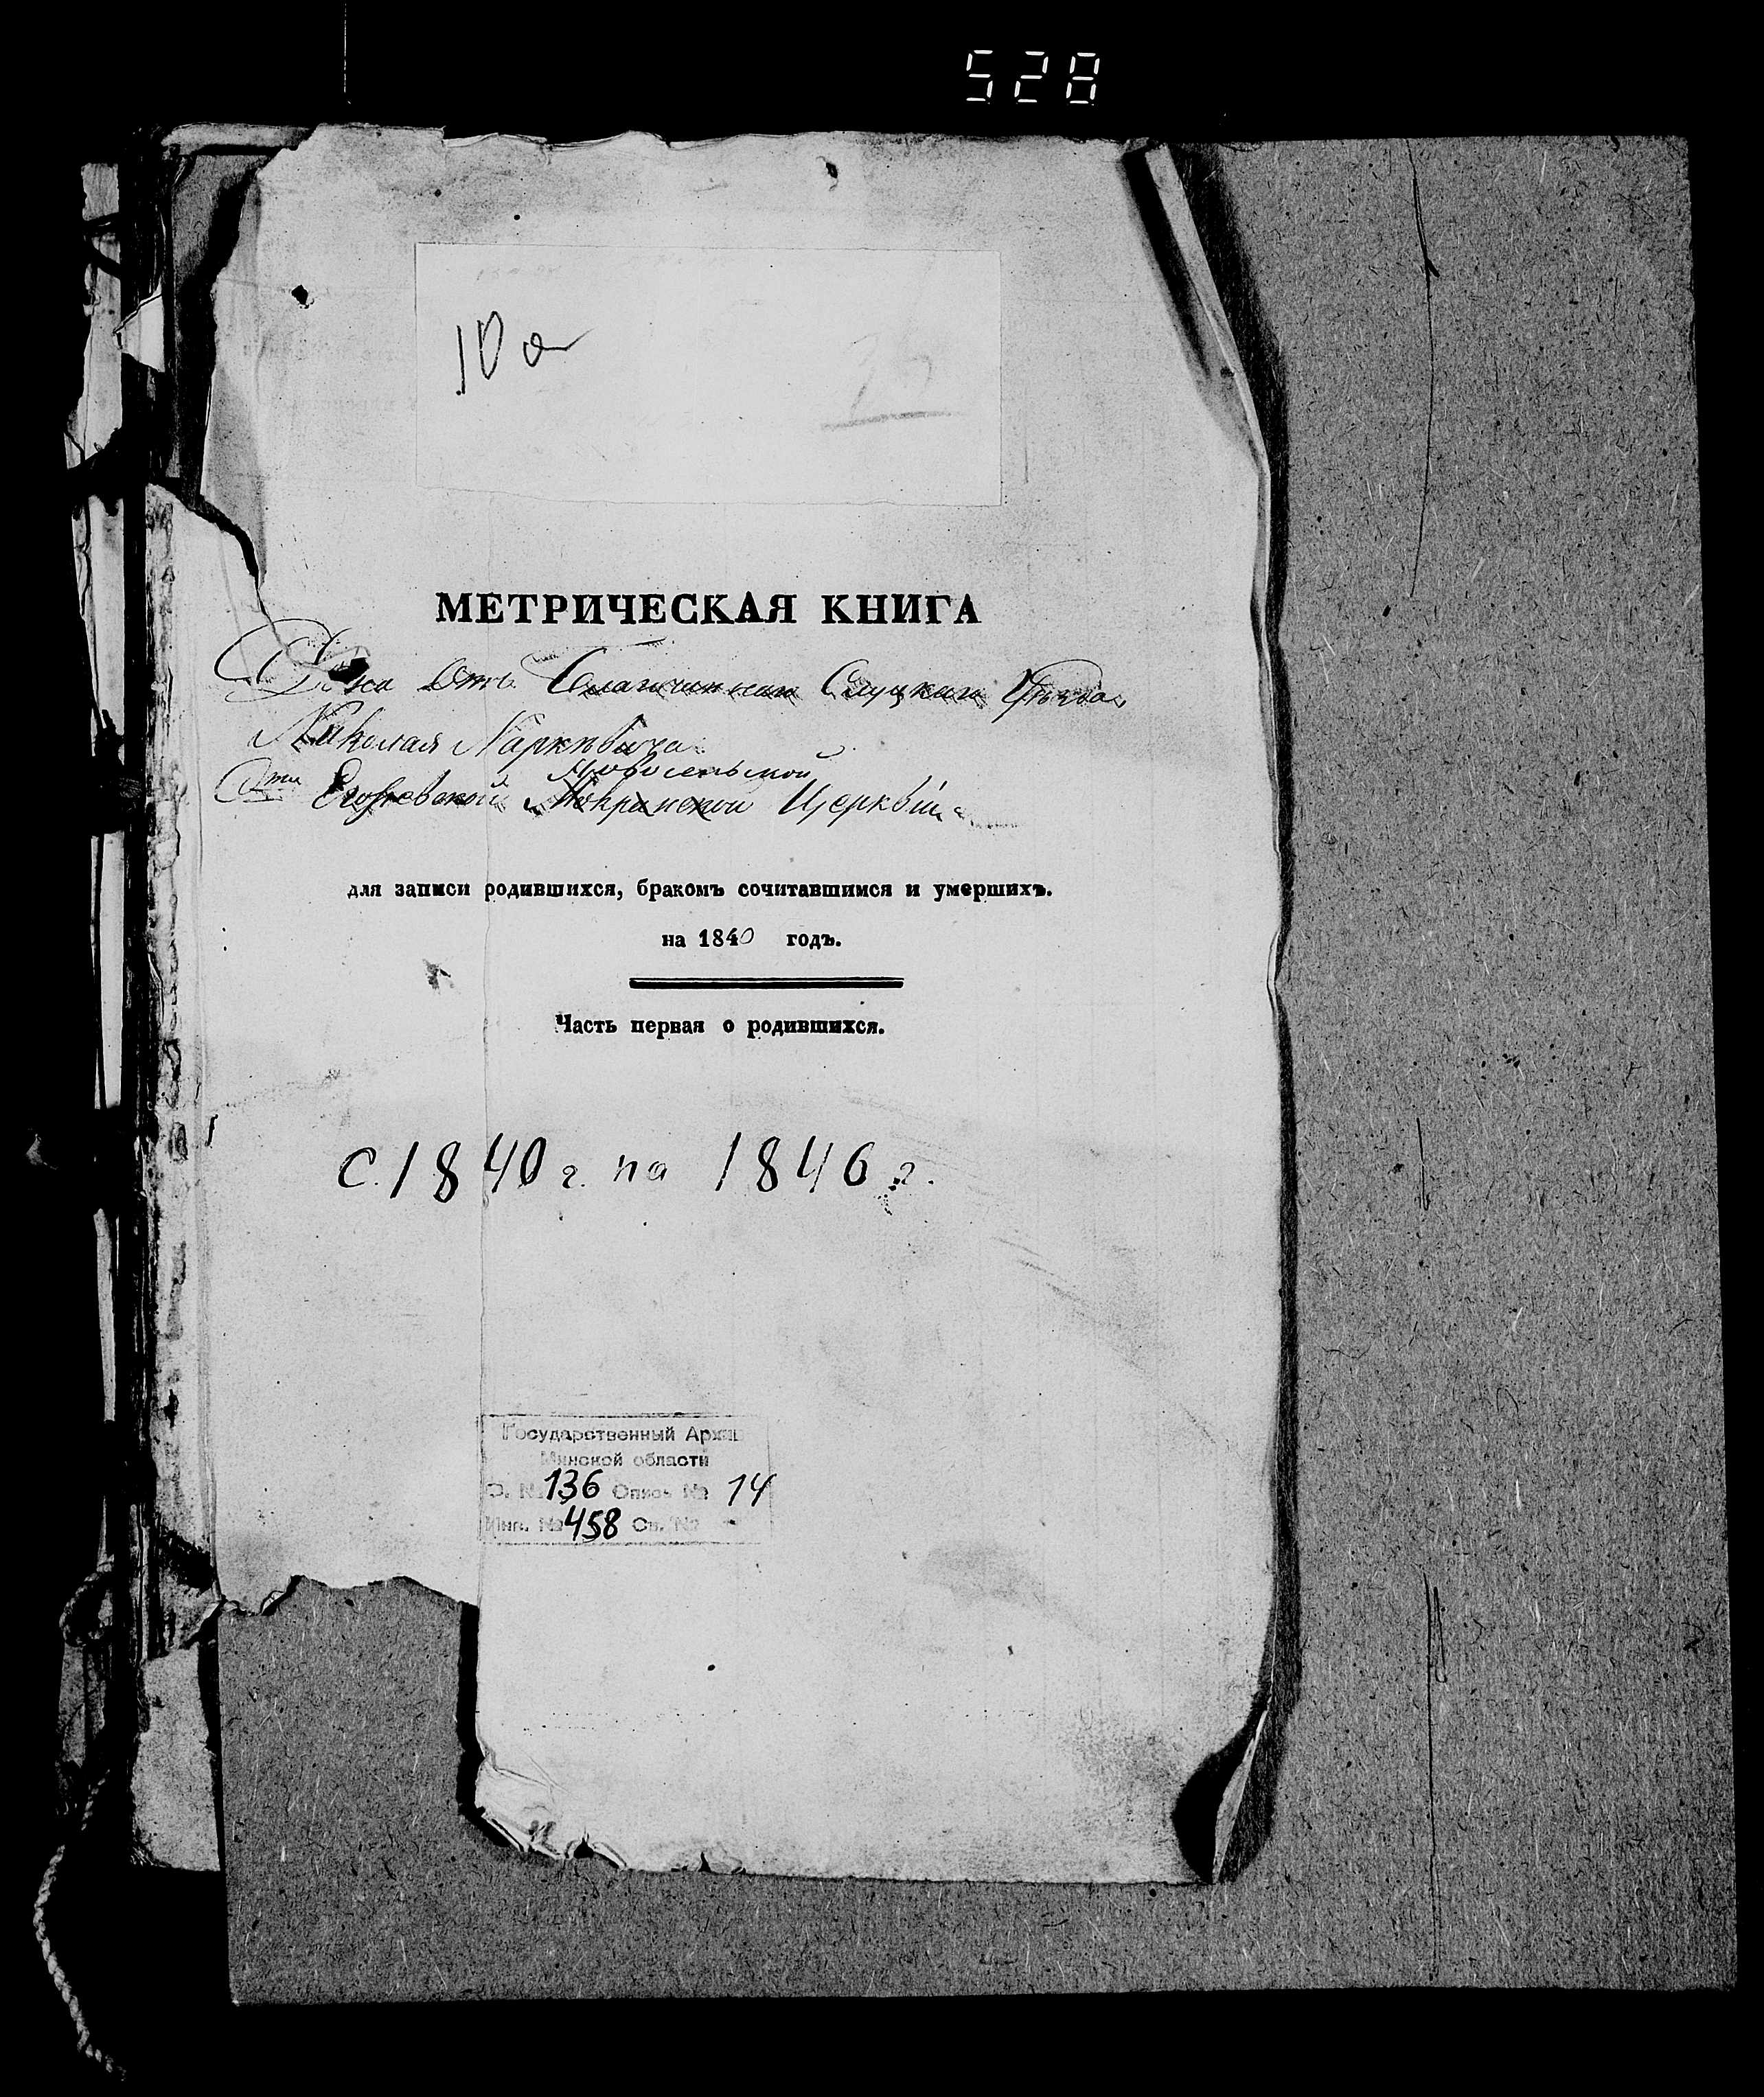 528
10 а
МЕТРИЧЕСКАЯ КНИГА
Дана Отъ Благочиннаго Слуцкаго Уѣзда
Николая
Новосельской
Церквы
для записи родившихся, бракомъ сочитавшимся и умершихъ.
на 1840 годъ.
Часть первая о родившихся.
с 1840 г. по 1846 г.
Государственный Архив
Минской области
Ф. № 136 Опись № 14
Инв. № 458 Св. №